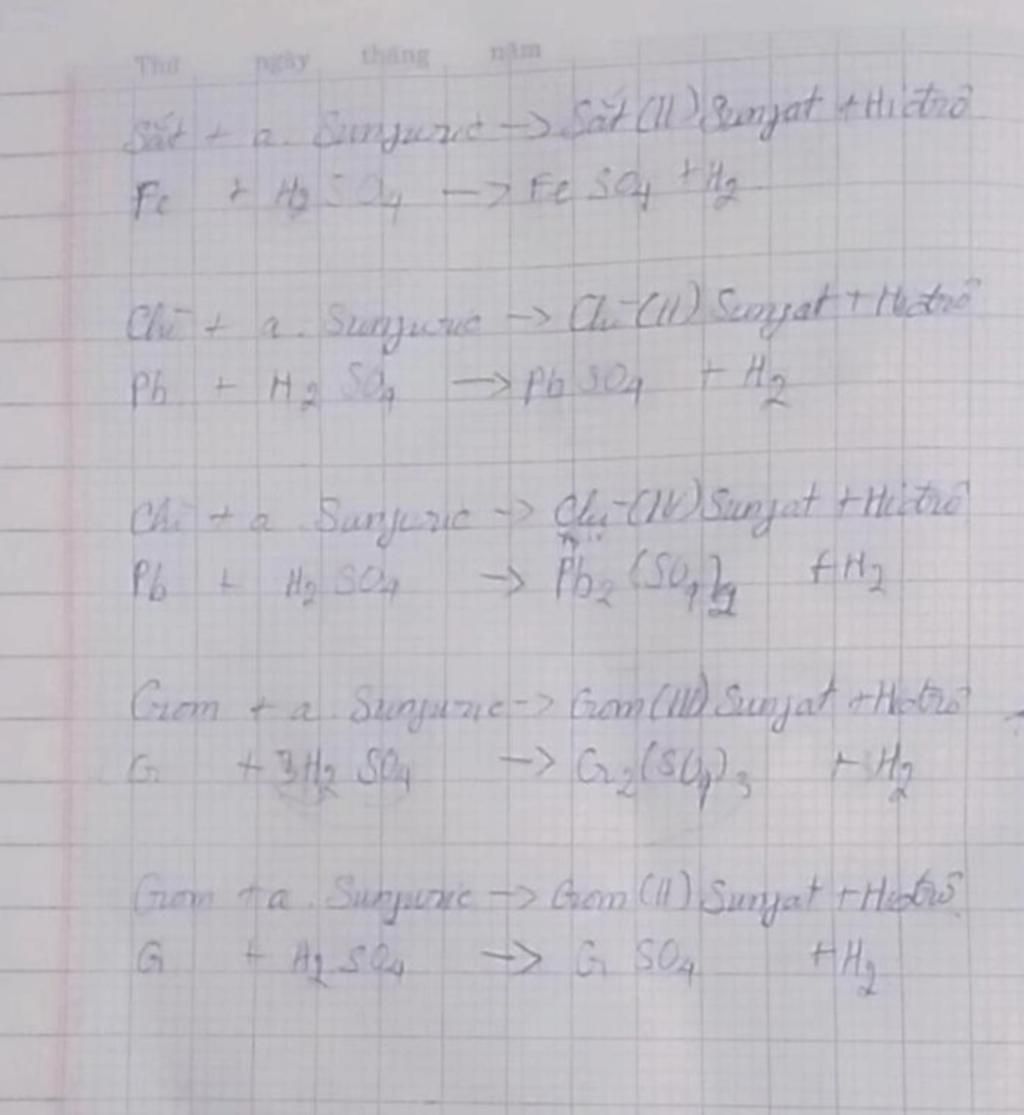 Thứ ngày tháng năm
Sắt + a. Sunfuric -> Sắt (II) Sunfat + Hiđrô
Fe + H2SO4 -> FeSO4 + H2
Chì + a. Sunfuric -> Chì (II) Sunfat + Hiđrô
Pb + H2SO4 -> PbSO4 + H2
Chì + a Sunfuric -> Chì (IV) Sunfat + Hiđrô
Pb + H2SO4 -> Pb2(SO4) + H2
Crom + a Sunfuric -> Crom (III) Sunfat + Hiđrô
Cr + 3H2SO4 -> Cr2(SO4)3 + H2
Crom + a. Sunfuric -> Crom (II) Sunfat + Hiđrô
Cr + H2SO4 -> CrSO4 + H2